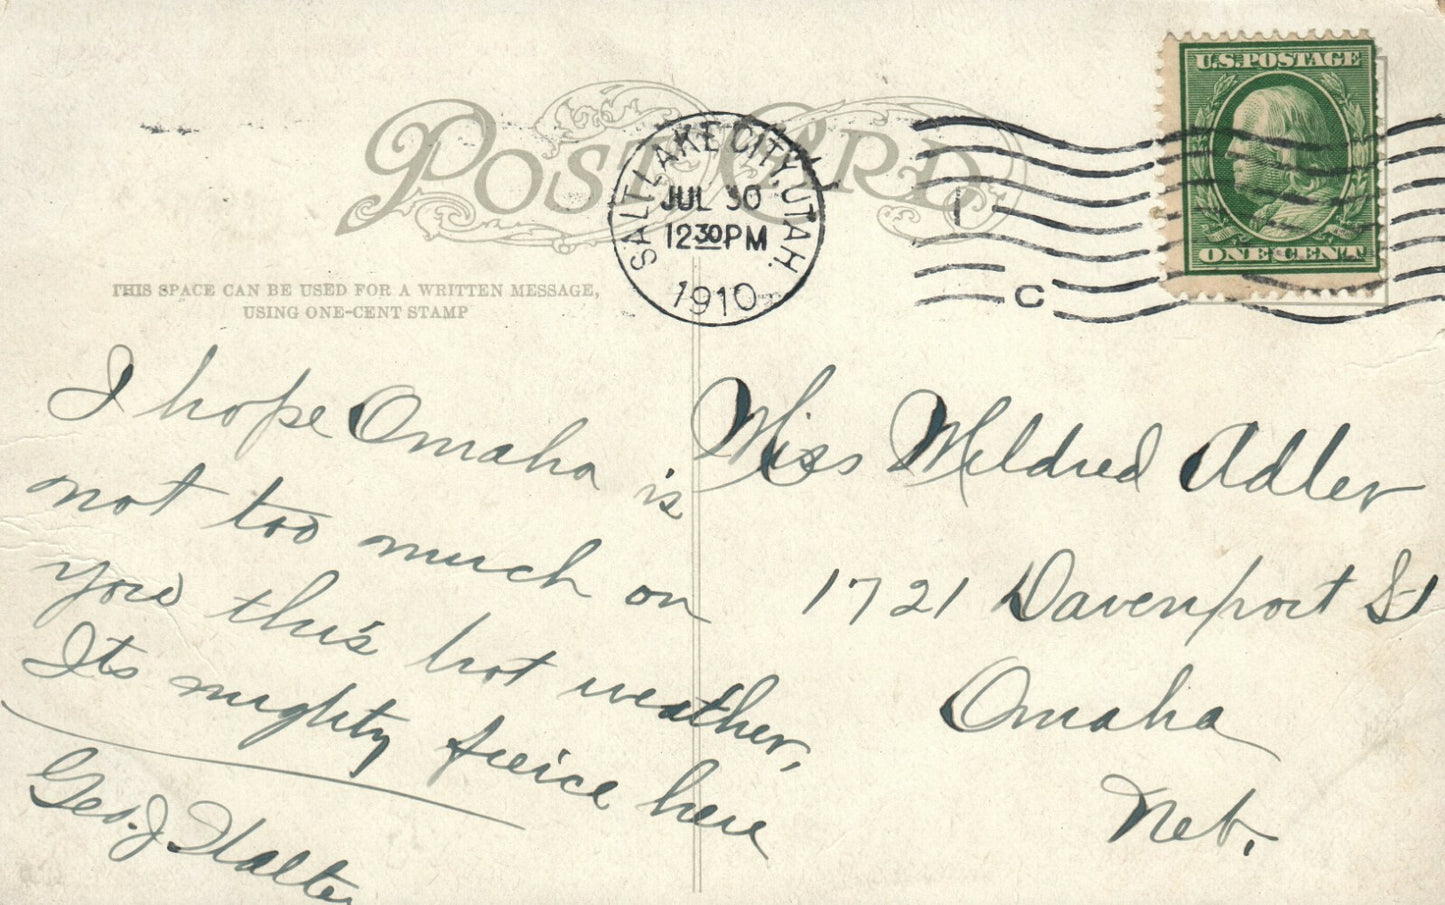 POST CARD
SALT LAKE CITY, UTAH.
JUL 30
12 30 PM
1910
1
C
U.S. POSTAGE
ONE CENT
THIS SPACE CAN BE USED FOR A WRITTEN MESSAGE,
USING ONE-CENT STAMP
I hope Omaha is
not too much on
you this hot weather,
Its mighty fierce here
Geo. J.
Miss Mildred Adler
1721 Davenport St
Omaha
Neb.